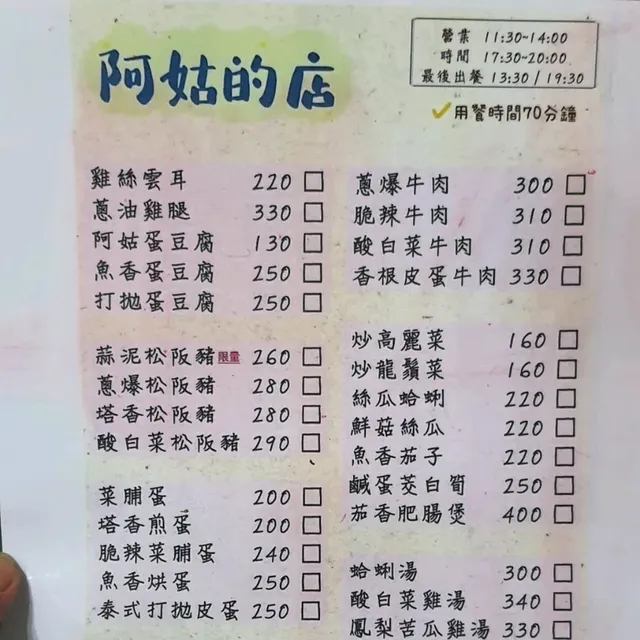 阿姑的店
營業 11:30~14:00
時間 17:30~20:00
最後出餐 13:30 / 19:30
用餐時間70分鐘
雞絲雲耳 220
蔥油雞腿 330
阿姑蛋豆腐 130
魚香蛋豆腐 250
打拋蛋豆腐 250
蒜泥松阪豬 限量 260
蔥爆松阪豬 280
塔香松阪豬 280
酸白菜松阪豬 290
菜脯蛋 200
塔香煎蛋 200
脆辣菜脯蛋 240
魚香烘蛋 250
泰式打拋皮蛋 250
蔥爆牛肉 300
脆辣牛肉 310
酸白菜牛肉 310
香根皮蛋牛肉 330
炒高麗菜 160
炒龍鬚菜 160
絲瓜蛤蜊 220
鮮菇絲瓜 220
魚香茄子 220
鹹蛋茭白筍 250
茄香肥腸煲 400
蛤蜊湯 300
酸白菜雞湯 340
鳳梨苦瓜雞湯 330